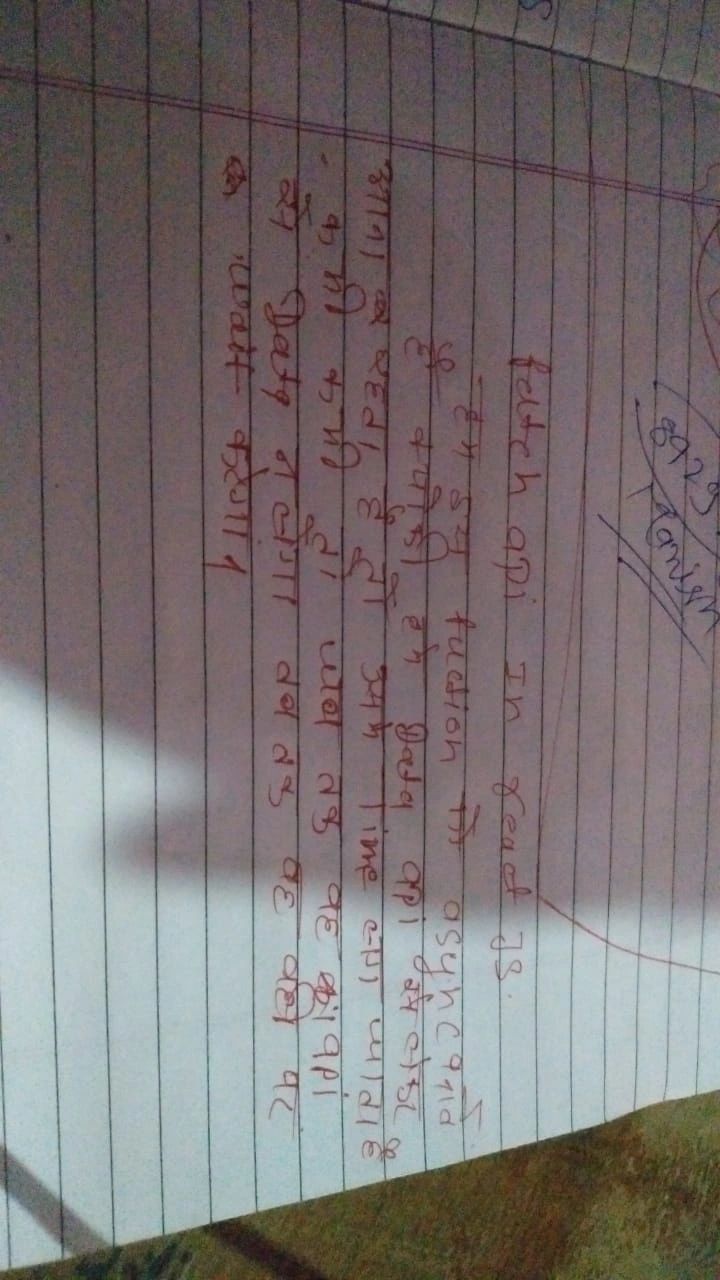 fetch api In react JS.
हम इस fuction को async बनाते
है क्योंकी हम Data api से लोड
करते है तो उसमे Time लग जाता है
कभी कभी तो जब तक वह api
से Data न लेगा तब तक वह वही पर
wait करेगा।